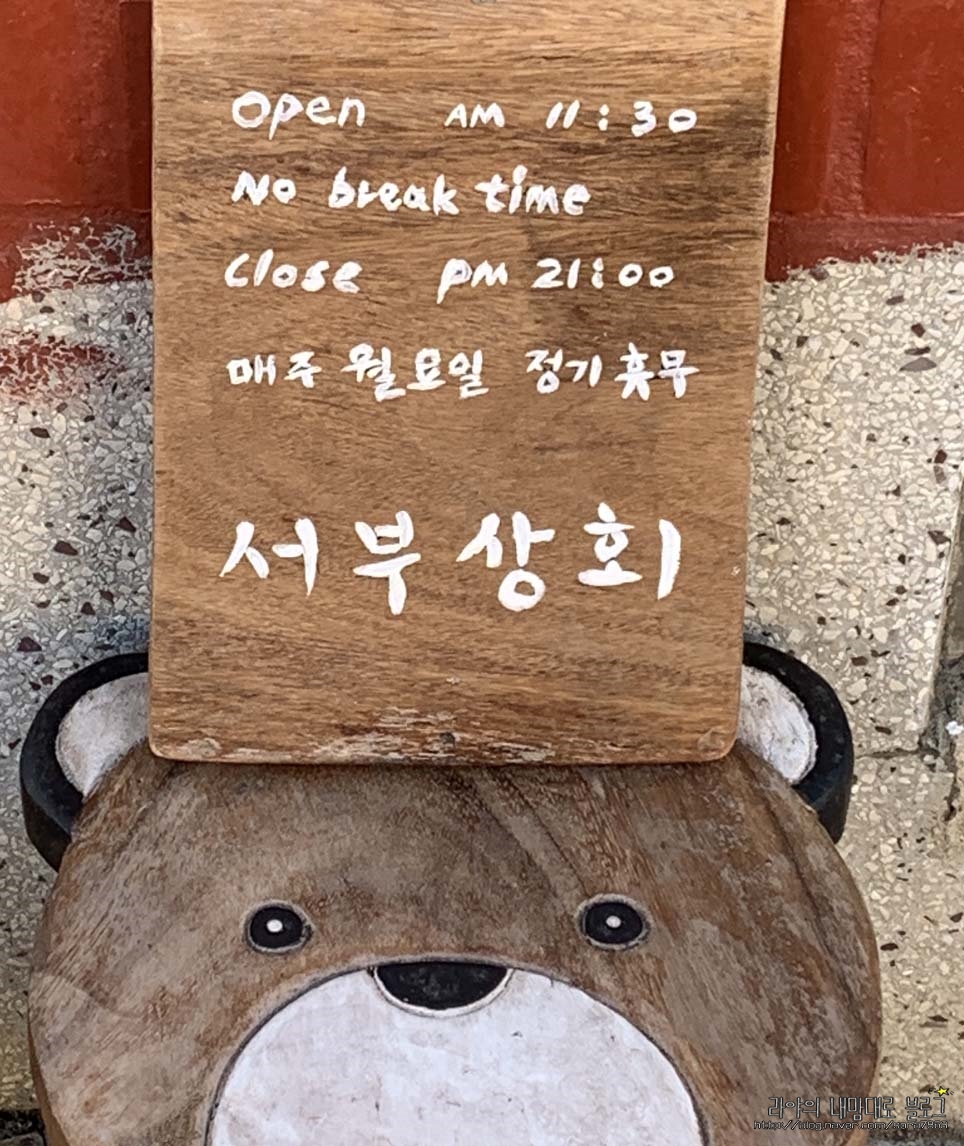 Open AM 11:30
No break time
Close pm 21:00
매주 월요일 정기휴무
서부상회
라야의 내맘대로 블로그